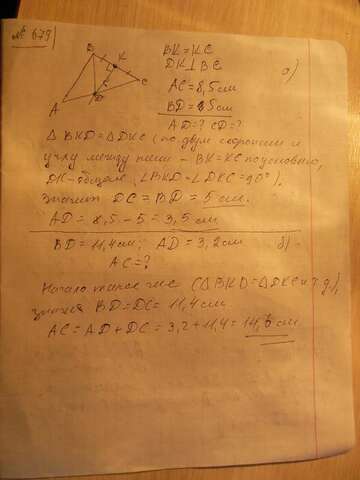 № 679
B
K
C
A
D
5
BK = KC
DK ⊥ BC
а)
AC = 8,5 см
BD = 5 см
AD = ? CD = ?
△ BKD = △ DKC (по двум сторонам и
углу между ними - BK = KC по условию,
DK - общая, ∠BKD = ∠DKC = 90°),
значит DC = BD = 5 см.
AD = 8,5 - 5 = 3,5 см
BD = 11,4 см; AD = 3,2 см б)
AC = ?
Начало такое же (△BKD = △DKC и т.д.),
значит BD = DC = 11,4 см
AC = AD + DC = 3,2 + 11,4 = 14,6 см